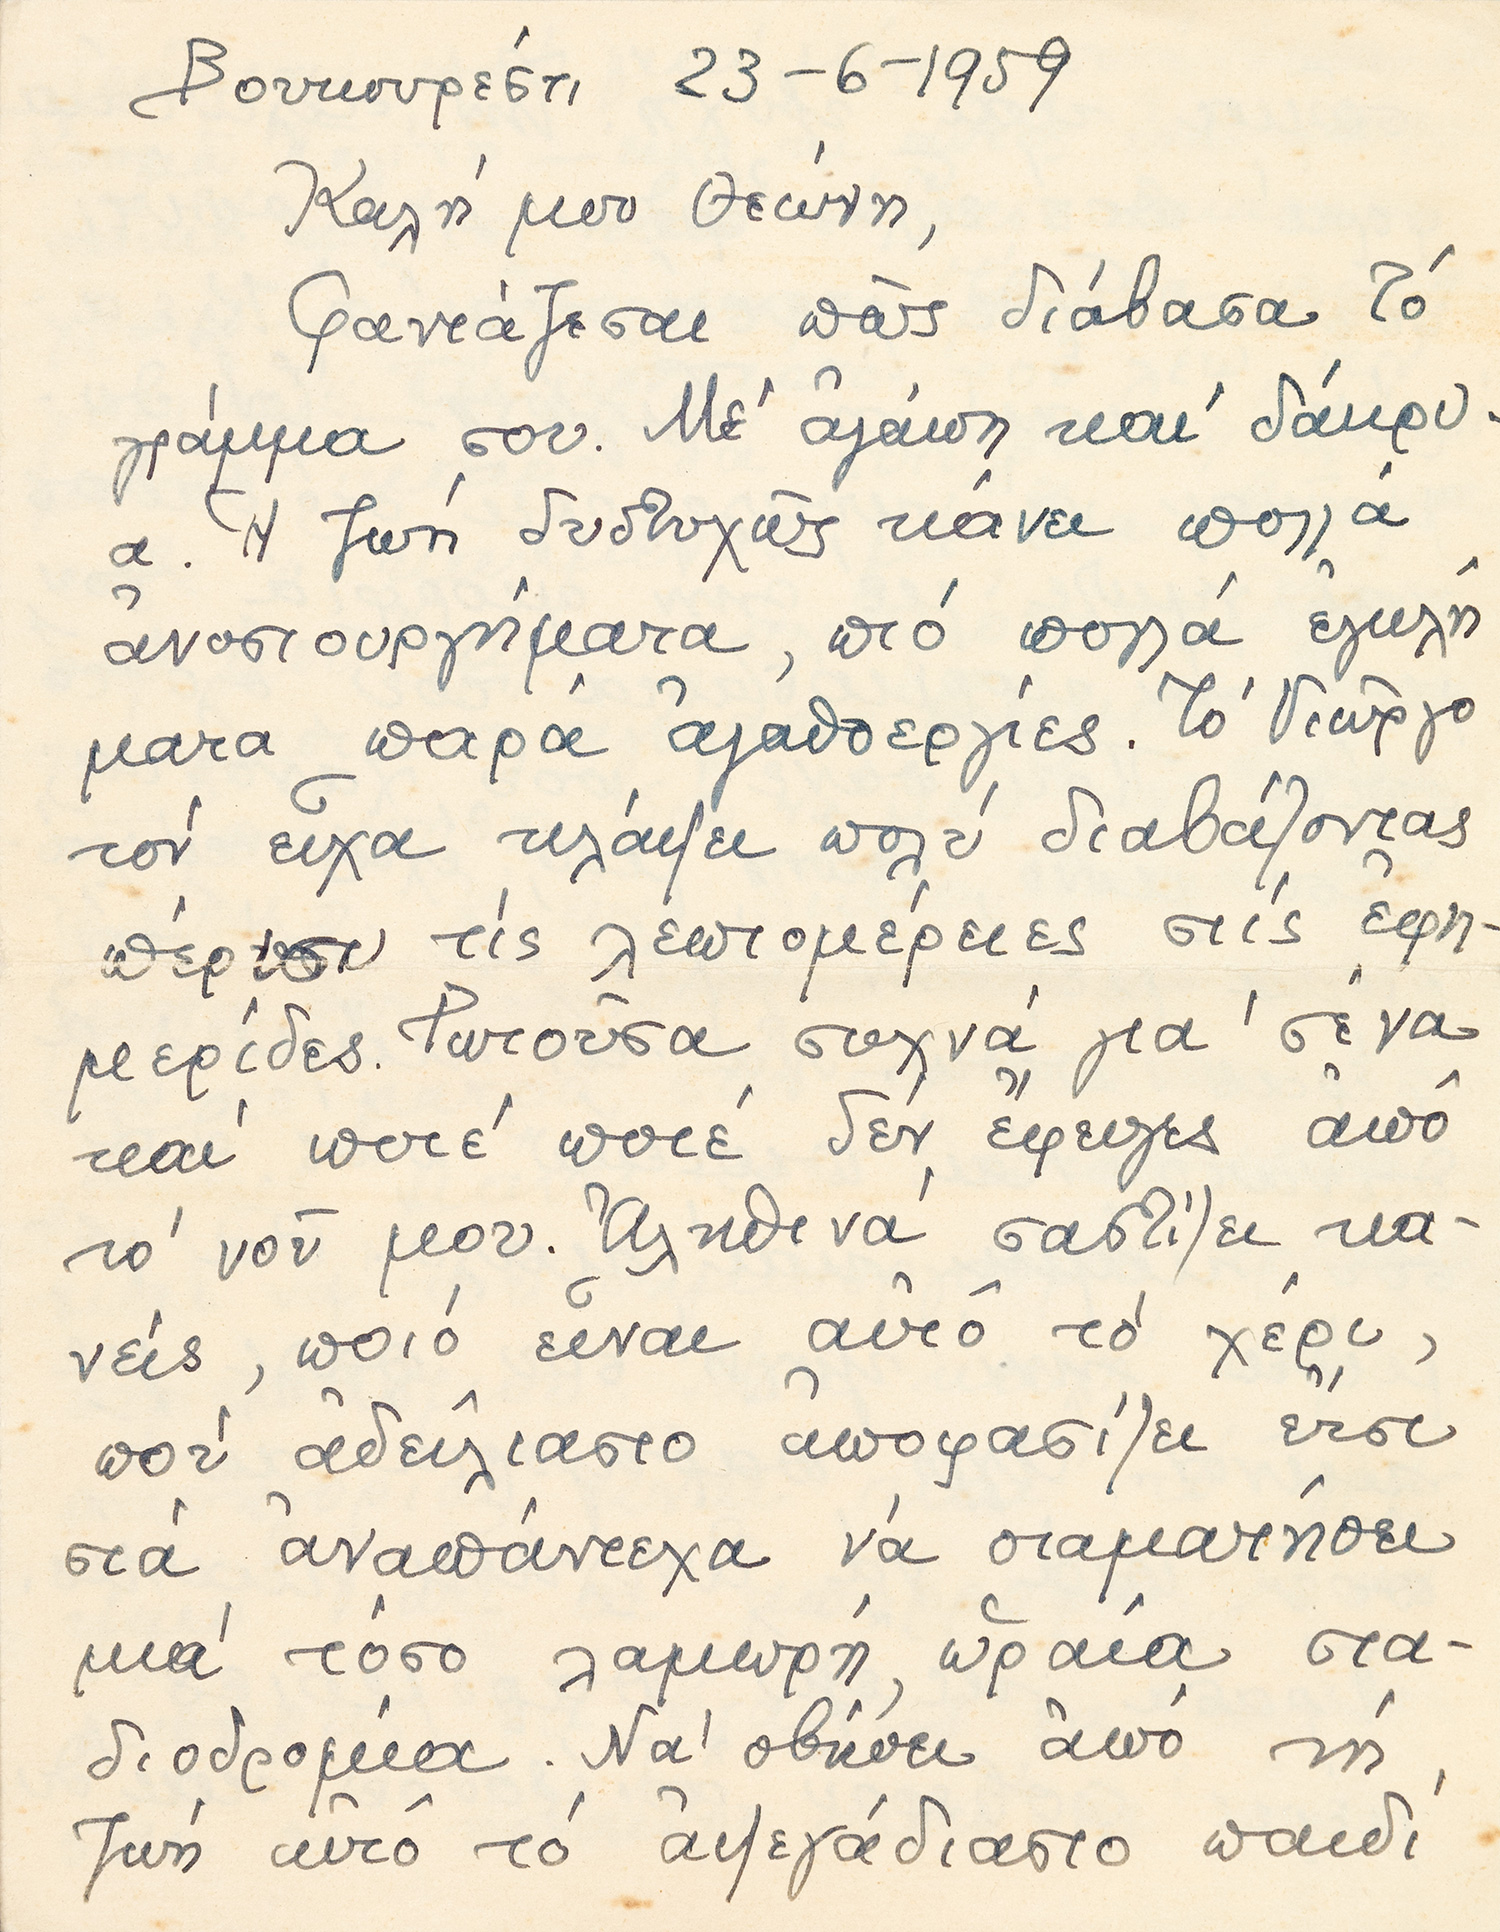 Βουκουρέστι 23-6-1959
Καλή μου Θεώνη,
Φαντάζεσαι πῶς διάβασα τό
γράμμα σου. Μέ ἀγάπη καί δάκρυ-
α. Ἡ ζωή δυστυχῶς κάνει πολλά
ἀνοσιουργήματα, πιό πολλά ἐγκλή
ματα παρά ἀγαθοεργίες. Τό Γιῶργο
τόν εἶχα κλάψει πολύ διαβάζοντας
πέρυσι τίς λεπτομέρειες στίς ἐφη-
μερίδες. Ρωτοῦσα συχνά γιά σένα
καί ποτέ ποτέ δέν ἔφευγες ἀπό
τό νοῦ μου. Ἀληθινά σαστίζει κα-
νείς, ποιό εἶναι αὐτό τό χέρι,
πού ἀδείλιαστο ἀποφασίζει ἔτσι
στά ἀναπάντεχα νά σταματήσει
μιά τόσο λαμπρή, ὡραία στα-
διοδρομία. Νά σβήσει ἀπό τή
ζωή αὐτό τό ἀψεγάδιαστο παιδί